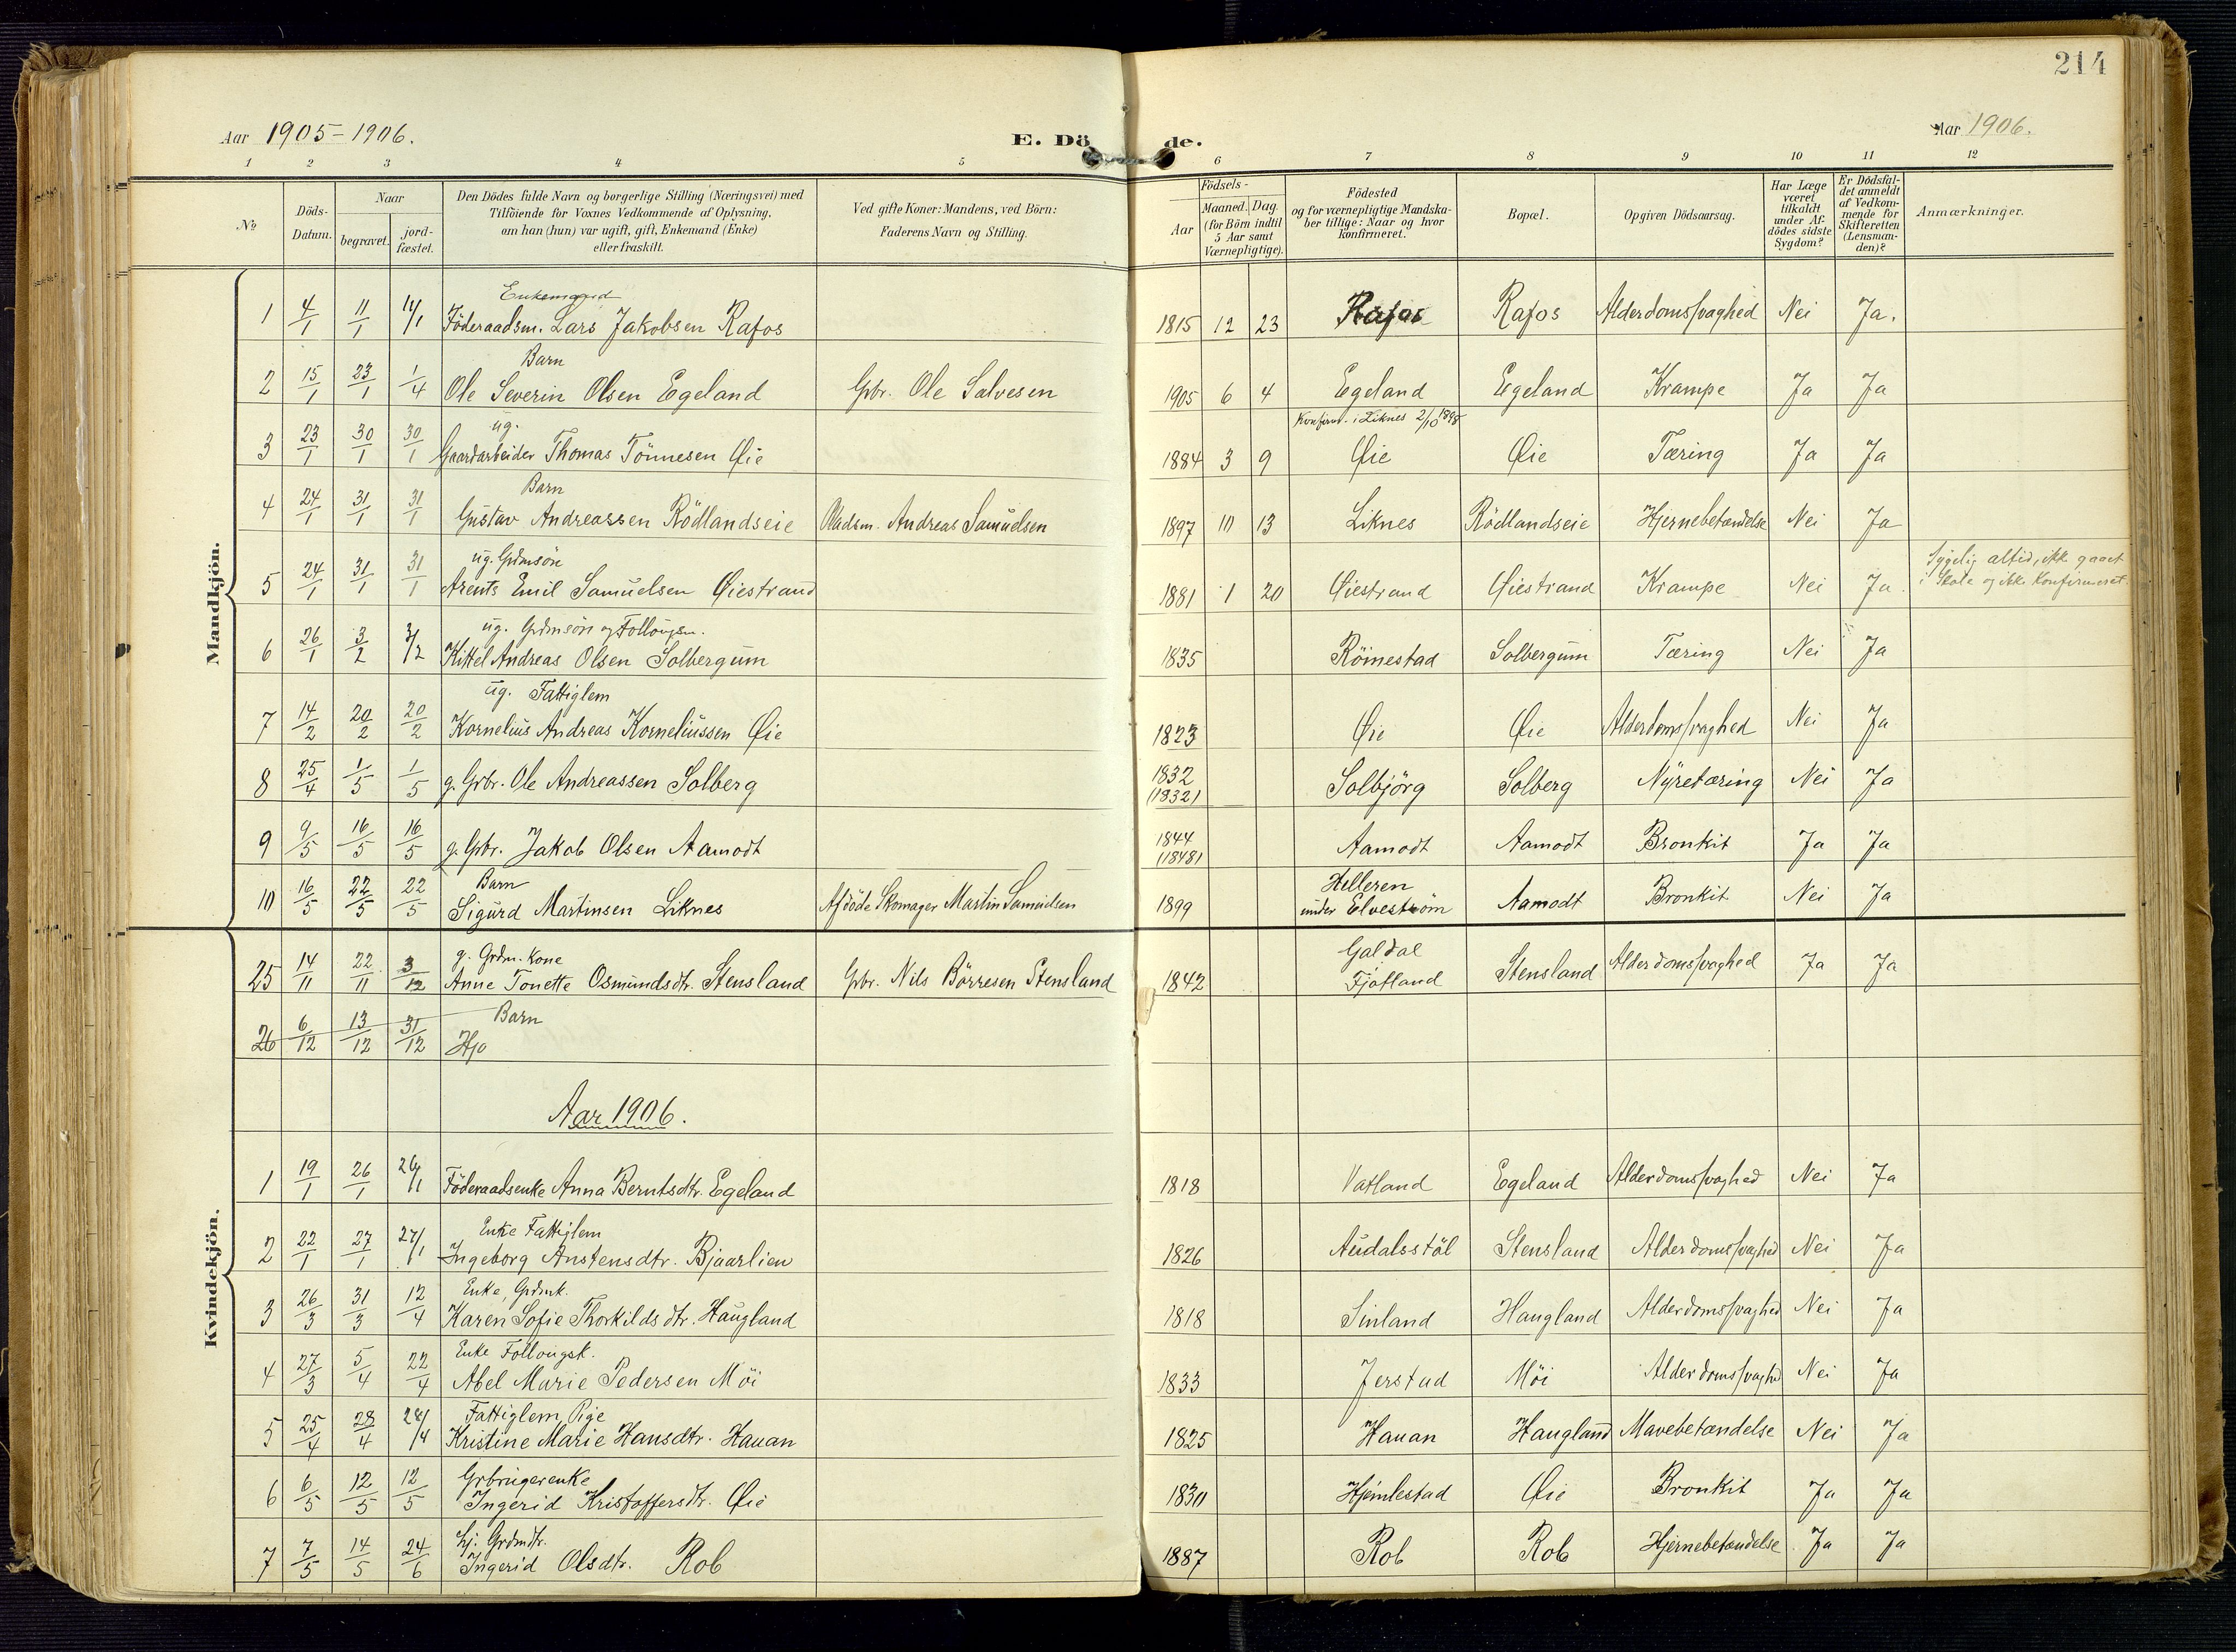 214
Aar 1905-1906.
E. Dö de.
Aar 1906.
1 2 3 4 5 6 7 8 9 10 11 12
No
Döds-Datum.
Naar
begravet.
jord-fæstet.
Den Dödes fulde Navn og borgerlige Stilling (Næringsvei) med
Tilföiende for Voxnes Vedkommende af Oplysning,
om han (hun) var ugift, gift, Enkemand (Enke)
eller fraskilt.
Ved gifte Koner: Mandens, ved Börn:
Faderens Navn og Stilling.
Födsels-
Aar
Maaned. Dag
(for Börn indtil
5 Aar samt
Værnepligtige).
Födested
og for værnepligtige Mandska-
ber tillige: Naar og hvor
konfirmeret.
Bopæl.
Opgiven Dödsaarsag.
Har Læge
været
tilkaldt
under Af-
dödes sidste
Sygdom?
Er Dödsfal-
det anmeldt
af Vedkom-
mende for
Skifteretten
(Lensman-
den)?
Anmærkninger.
Mandkjön.
Enkemand
1 4/1 11/1 11/1 Föderaadsm. Lars Jakobsen Rafos 1815 12 23 Rafos Rafos Alderdomssvaghed Nei Ja.
Barn
2 15/1 23/1 1/4 Ole Severin Olsen Egeland Gbr. Ole Salvesen 1905 6 4 Egeland Egeland Krampe Ja Ja
ug. Konfirm. i Liknes 2/10 1898
3 23/1 30/1 30/1 Gaardarbeider Thomas Tönnesen Øie 1884 3 9 Øie Øie Tæring Ja Ja
Barn
4 24/1 31/1 31/1 Gustav Andreassen Rödlandseie Pladsm. Andreas Samuelsen 1897 10 13 Liknes Rödlandseie Hjernebetændelse Nei Ja
ug. Grdmsön Sygelig altid, ikke gaaet
5 24/1 31/1 31/1 Arents Emil Samuelsen Øiestrand 1881 1 20 Øiestrand Øiestrand Krampe Nei Ja i Skole og ikke Konfirmeret.
ug. Grdmsön og
6 26/1 3/2 3/2 Kittel Andreas Olsen Solbergum 1835 Röinestad Solbergum Tæring Nei Ja
ug. Fattiglem
7 14/2 20/2 20/2 Kornelius Andreas Korneliussen Øie 1823 Øie Øie Alderdomssvaghed Nei Ja
8 25/4 1/5 1/5 g. Grbr. Ole Andreassen Solberg 1832 (1832) Solbjörg Solberg Nyretæring Nei Ja
9 9/5 16/5 16/5 g. Gbr. Jakob Olsen Aamodt 1844 (1848) Aamodt Aamodt Bronkit Ja Ja
Barn Helleren
10 16/5 22/5 22/5 Sigurd Martinsen Liknes Afdöde Skomager Martin Samuelsen 1899 under Elveström Aamodt Bronkit Nei Ja
Kvindekjön.
g. Grdm. Kone Galdal
25 14/11 22/11 3/12 Anne Tonette Osmundsdtr. Stensland Gbr. Nils Börresen Stensland 1842 Fjotland Stensland Alderdomssvaghed Ja Ja
Barn
26 6/12 13/12 31/12 Hjo
Aar 1906.
1 19/1 26/1 26/1 Föderaadsenke Anna Berntsdtr. Egeland 1818 Vatland Egeland Alderdomssvaghed Nei Ja
Enke Fattiglem
2 22/1 27/1 27/1 Ingeborg Anstensdtr. Bjaarlien 1826 Audalsstöl Stensland Alderdomssvaghed Nei Ja
Enke, Grdmk.
3 26/3 31/3 12/4 Karen Sofie Thorkildsdtr. Haugland 1818 Sinland Haugland Alderdomssvaghed Nei Ja
Enke Follougsk.
4 27/3 5/4 22/4 Abel Marie Pedersen Möi 1833 Jerstad Möi Alderdomssvaghed Nei Ja
Fattiglem, Pige
5 25/4 28/4 28/4 Kristine Marie Hansdtr. Hauan 1825 Hauan Haugland Mavebetændelse Nei Ja
Grbrugerenke
6 6/5 12/5 12/5 Ingerid Kristoffersdtr. Øie 1830 Hjemlestad Øie Bronkit Ja Ja
Grdmdtr.
7 7/5 14/5 24/6 Ingerid Olsdtr. Rob 1887 Rob Rob Hjernebetændelse Ja Ja